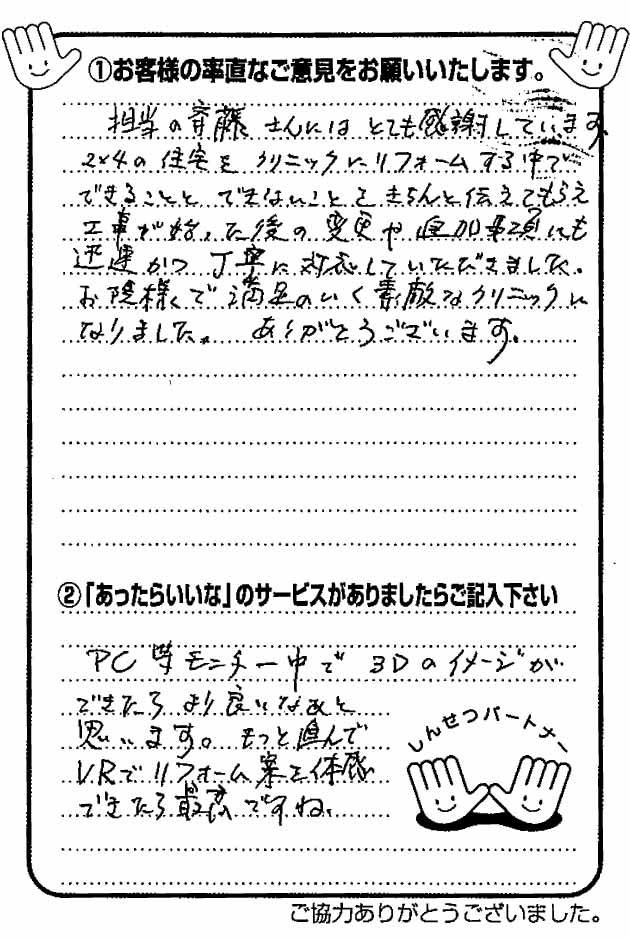 ①お客様の率直なご意見をお願いいたします。
担当の斉藤さんにはとても感謝しています
2×4の住宅をクリニックにリフォームする中で
できることとできないことをきちんと伝えてもらえ
工事が始った後の変更や追加事項にも
迅速かつ丁寧に対応していただきました。
お陰様で満足のいく素敵なクリニックに
なりました。ありがとうございます。
②「あったらいいな」のサービスがありましたらご記入下さい
PC等モニター中で3Dのイメージが
できたらより良いなぁと
思います。もっと進んで
VRでリフォーム案を体感
できたら最高ですね。
しんせつパートナー
ご協力ありがとうございました。